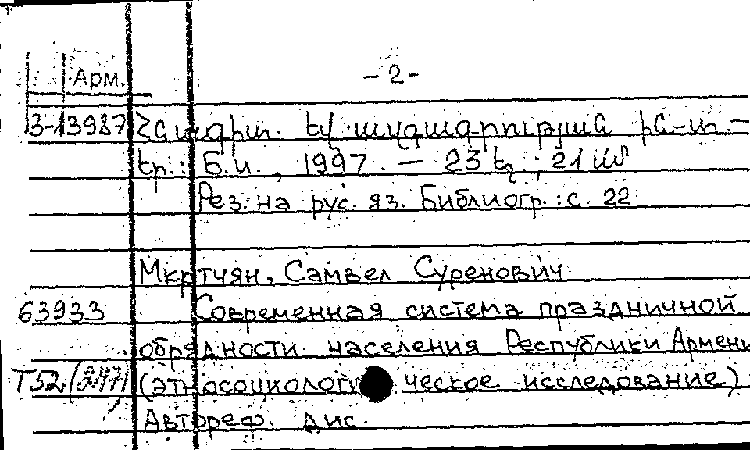 Арм.
- 2 -
3-13987 Հանդիս. եվ մշակույթի ին-տ -
Եր.: Б.и., 1997. — 23 էջ; 21 սմ
Рез. на рус. яз. Библиогр.: с. 22
Мкртчян, Самвел Суренович
63933 Современная система праздничной
обрядности населения Республики Армени
Т52 (этносоциологическое исследование)
Автореф. дис.